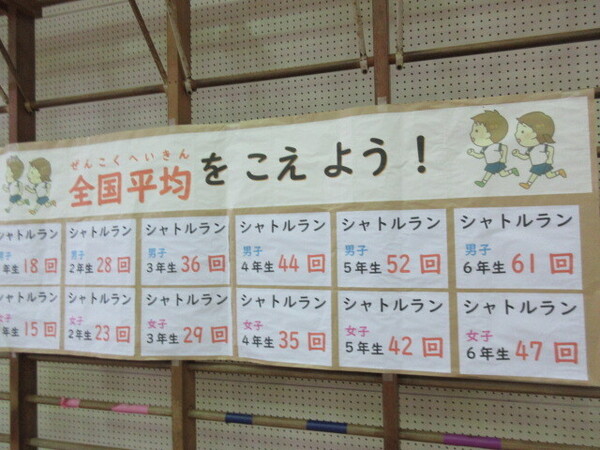 ぜんこくへいきん
全国平均をこえよう！
シャトルラン
男子
年生 18回
シャトルラン
男子
2年生 28回
シャトルラン
男子
3年生 36回
シャトルラン
男子
4年生 44回
シャトルラン
男子
5年生 52回
シャトルラン
男子
6年生 61回
シャトルラン
女子
年生 15回
シャトルラン
女子
2年生 23回
シャトルラン
女子
3年生 29回
シャトルラン
女子
4年生 35回
シャトルラン
女子
5年生 42回
シャトルラン
女子
6年生 47回